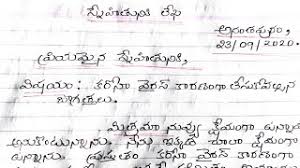 స్నేహితుని లేఖ
అనంతపురం,
23/09/2020.
ప్రియమైన స్నేహితునికి,
విషయం: కరోనా వైరస్ కారణంగా తీసుకోవలసిన
జాగ్రత్తలు.
మిత్రమా నువ్వు క్షేమంగా ఉన్నావని
అనుకుంటున్నాను. నేను ఇక్కడ చాలా క్షేమంగా
ఉన్నాను. ప్రస్తుతం కరోనా వైరస్ కారణంగా